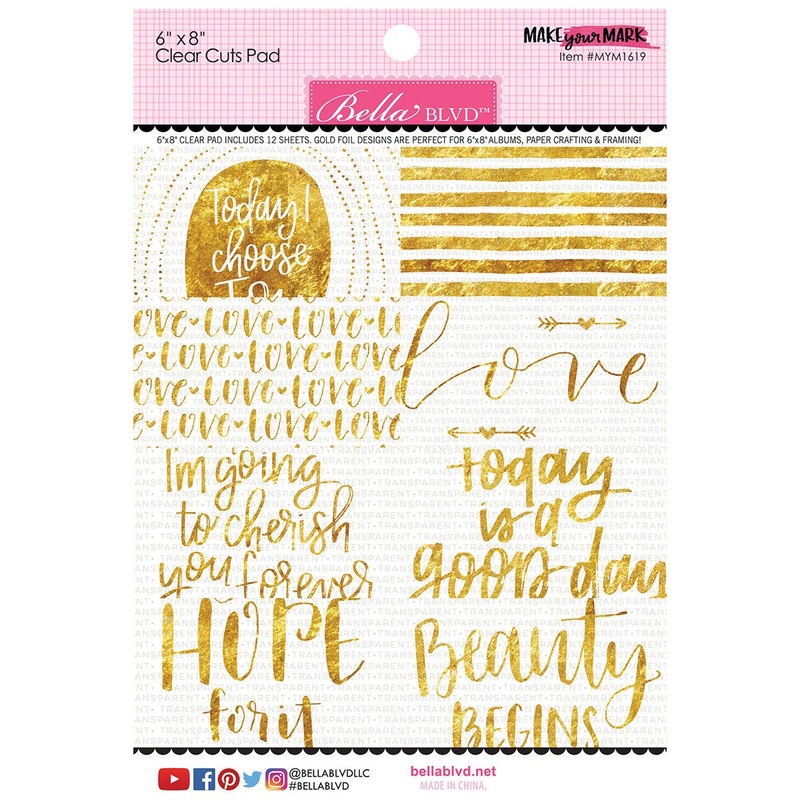 6" x 8"
Clear Cuts Pad
MAKE your MARK
Item #MYM1619
Bella BLVD™
6"x8" CLEAR PAD INCLUDES 12 SHEETS. GOLD FOIL DESIGNS ARE PERFECT FOR 6"x8" ALBUMS, PAPER CRAFTING & FRAMING!
Today I
choose
Joy
LOVE LOVE LOVE
LOVE LOVE LOVE
LOVE LOVE LOVE
LOVE LOVE LOVE
love
I'm going
to cherish
you forever
today
is a
good day
HOPE
for it
Beauty
BEGINS
TRANSPARENT • TRANSPARENT • TRANSPARENT
@BELLABLVDLLC
#BELLABLVD
bellablvd.net
MADE IN CHINA.